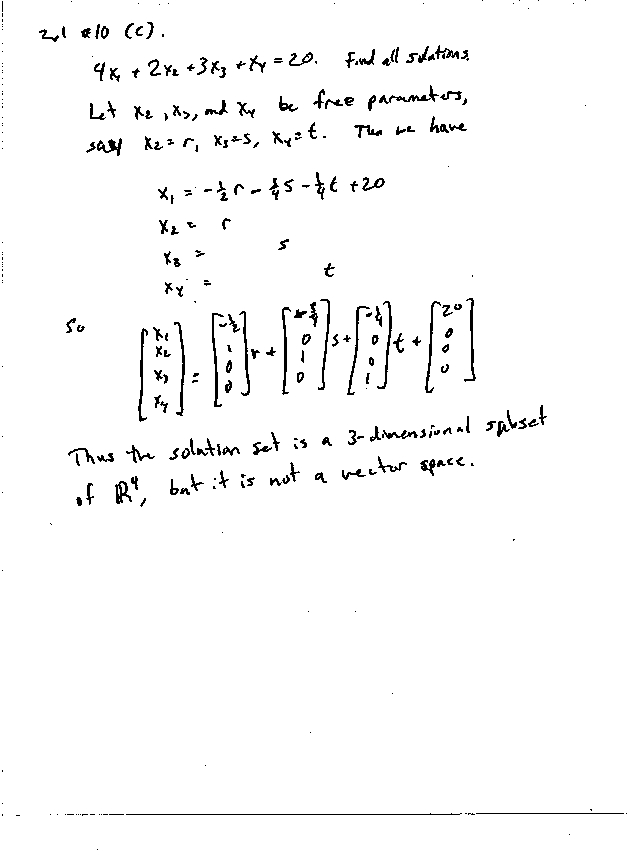 2.1 #10 (c).
4x₁ + 2x₂ + 3x₃ + x₄ = 20. Find all solutions.
Let x₂, x₃, and x₄ be free parameters,
say x₂ = r, x₃ = s, x₄ = t. Then we have
x₁ = -½r - ¾s - ¼t + 20
x₂ = r
x₃ = s
x₄ = t
So [x₁ x₂ x₃ x₄] = [-½ 1 0 0] r + [-¾ 0 1 0] s + [-¼ 0 0 1] t + [20 0 0 0]
Thus the solution set is a 3-dimensional subset
of ℝ⁴, but it is not a vector space.